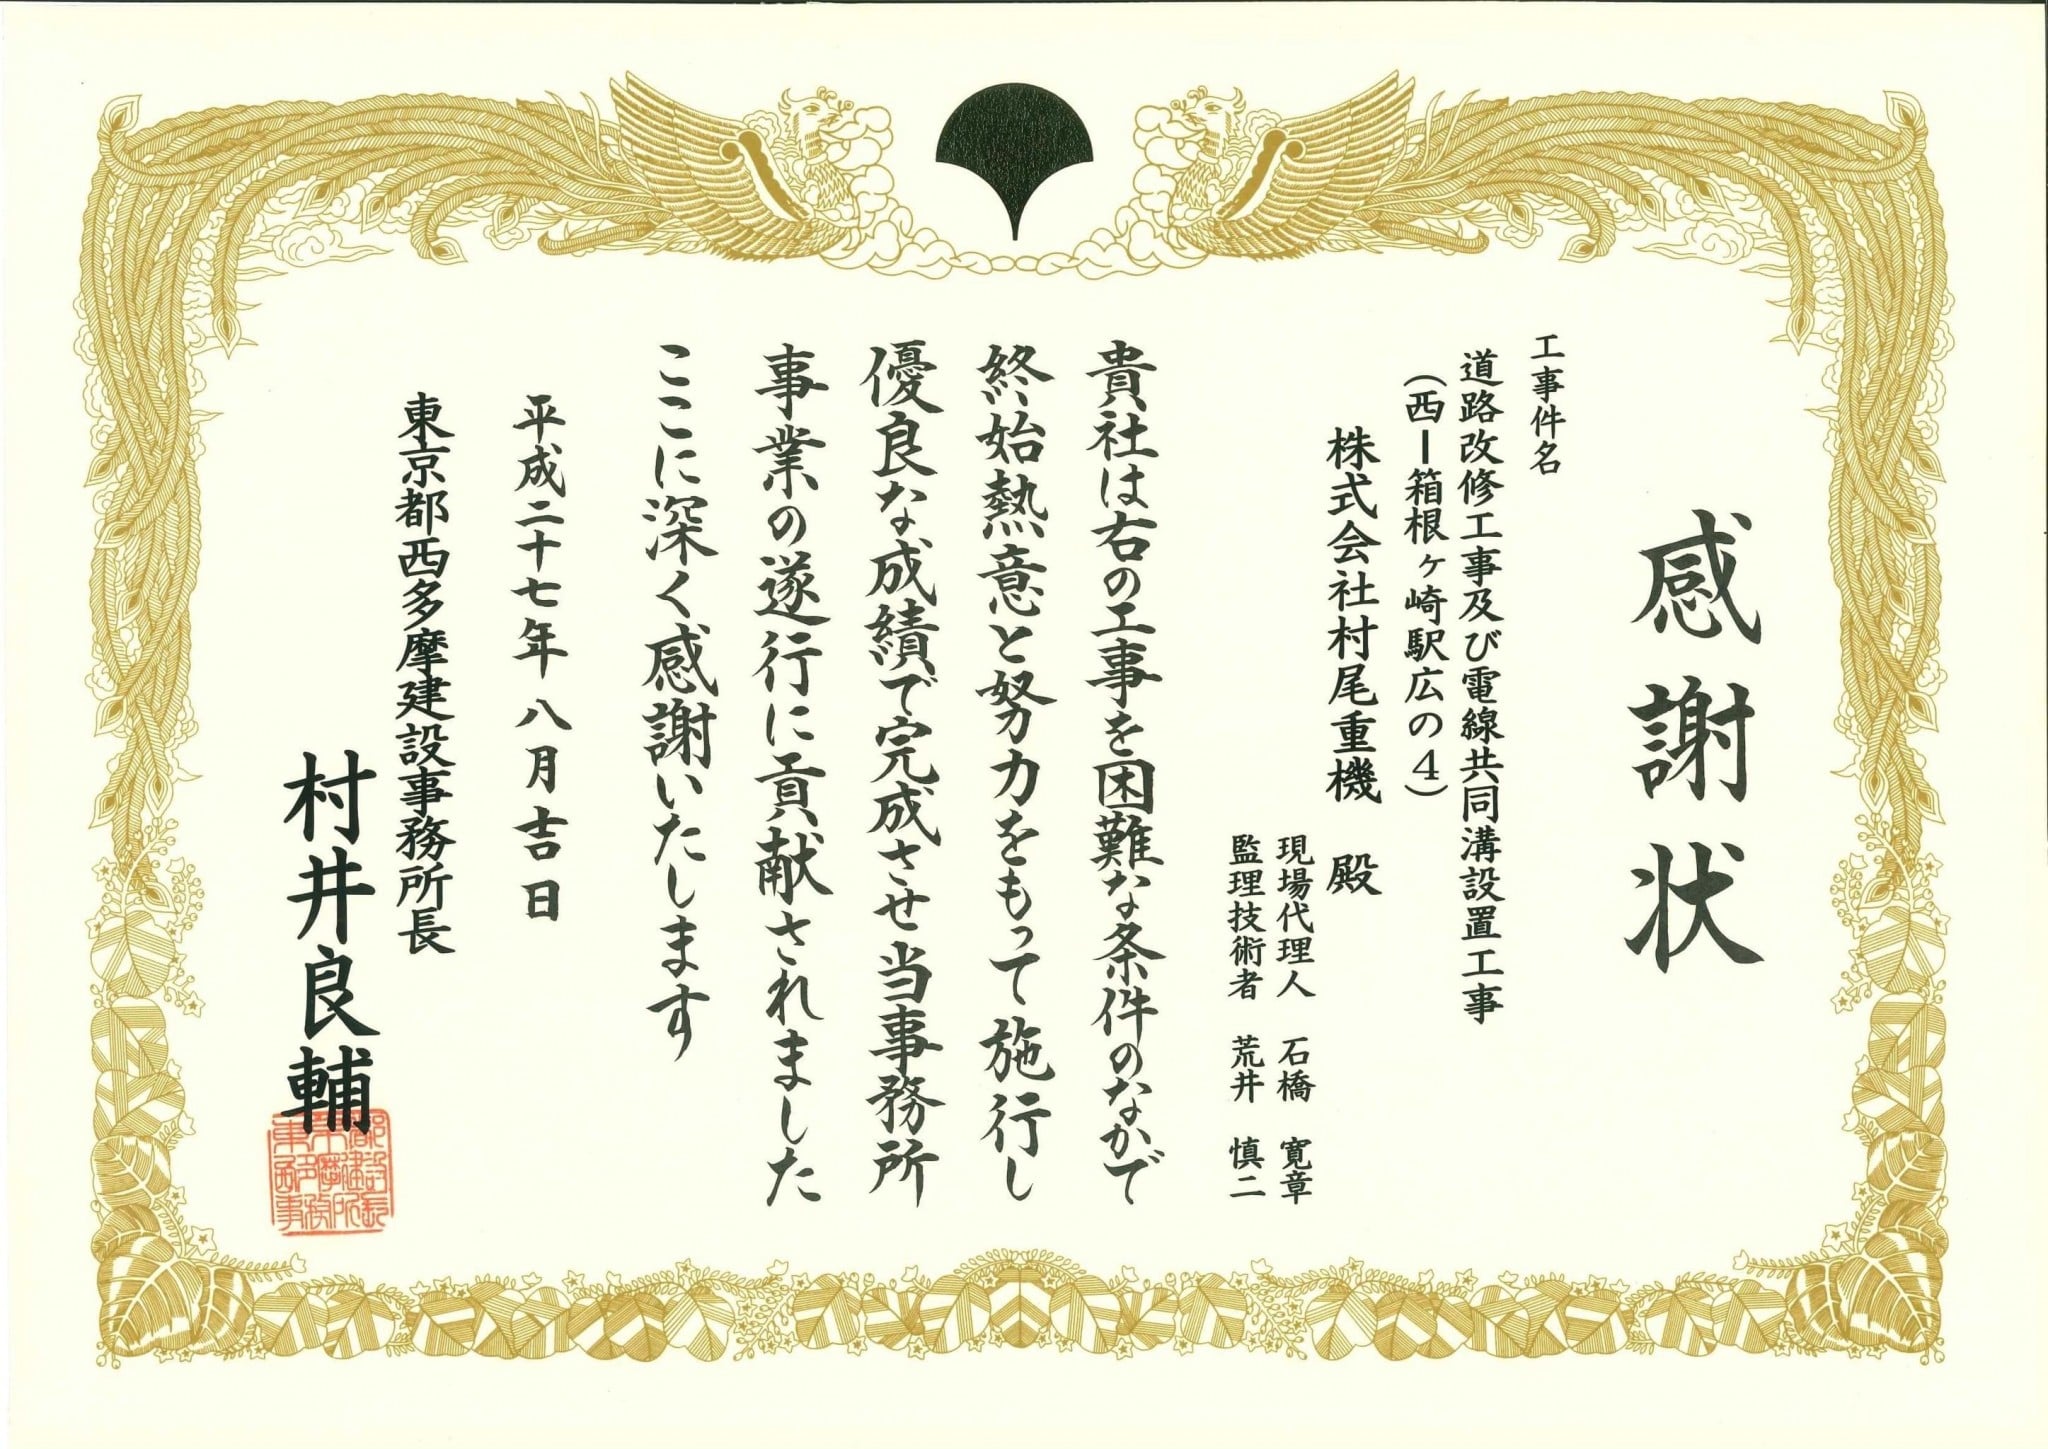 感謝状
工事件名
道路改修工事及び電線共同溝設置工事
（西ー箱根ヶ崎駅広の４）
株式会社村尾重機　殿
現場代理人　石橋　寛章
監理技術者　荒井　慎二
貴社は右の工事を困難な条件のなかで
終始熱意と努力をもって施行し
優良な成績で完成させ当事務所
事業の遂行に貢献されました
ここに深く感謝いたします
平成二十七年八月吉日
東京都西多摩建設事務所長
村井良輔